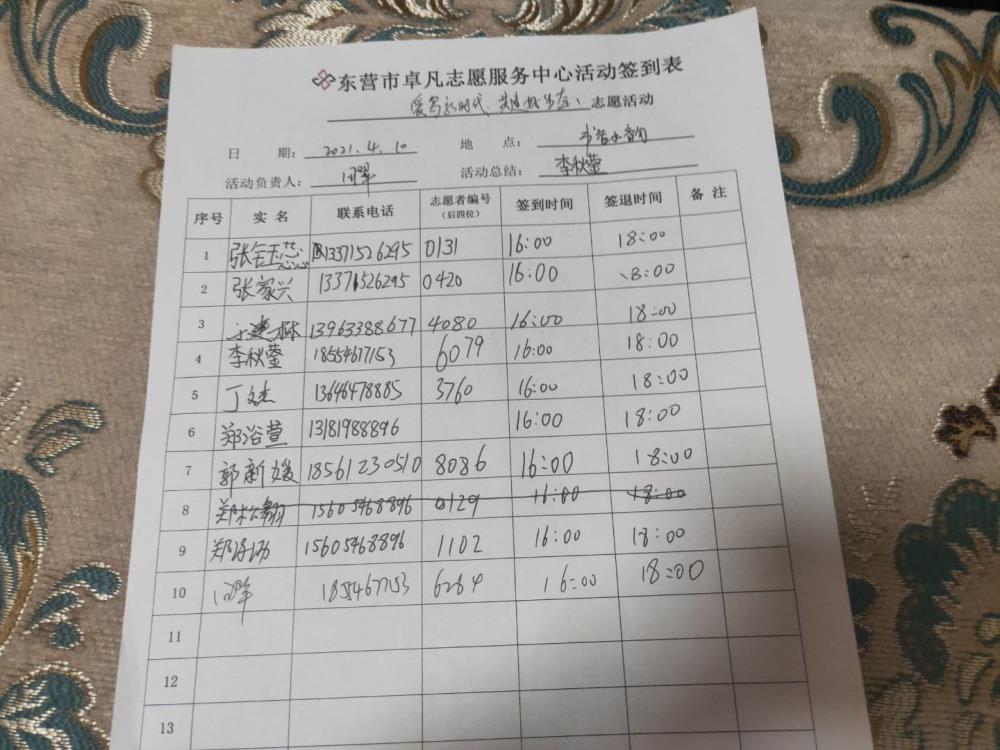 东营市卓凡志愿服务中心活动签到表
爱写新时代、共建好生态、志愿活动
日 期: 2021.4.10 地 点: 书香小韵
活动负责人: 闫翠 活动总结: 李秋莹
序号 实名 联系电话 志愿者编号(后四位) 签到时间 签退时间 备注
1 张钰芯 13371526295 0131 16:00 18:00
2 张家兴 13371526295 0420 16:00 18:00
3 13963388677 4080 16:00 18:00
4 李秋莹 18554677153 6079 16:00 18:00
5 丁杰 13646478885 3760 16:00 18:00
6 郑浴萱 13181988896 16:00 18:00
7 郭新媛 18561230510 8086 16:00 18:00
8 15605468896 0129 16:00 18:00
9 15605468896 1102 16:00 18:00
10 185467153 6284 16:00 18:00
11
12
13